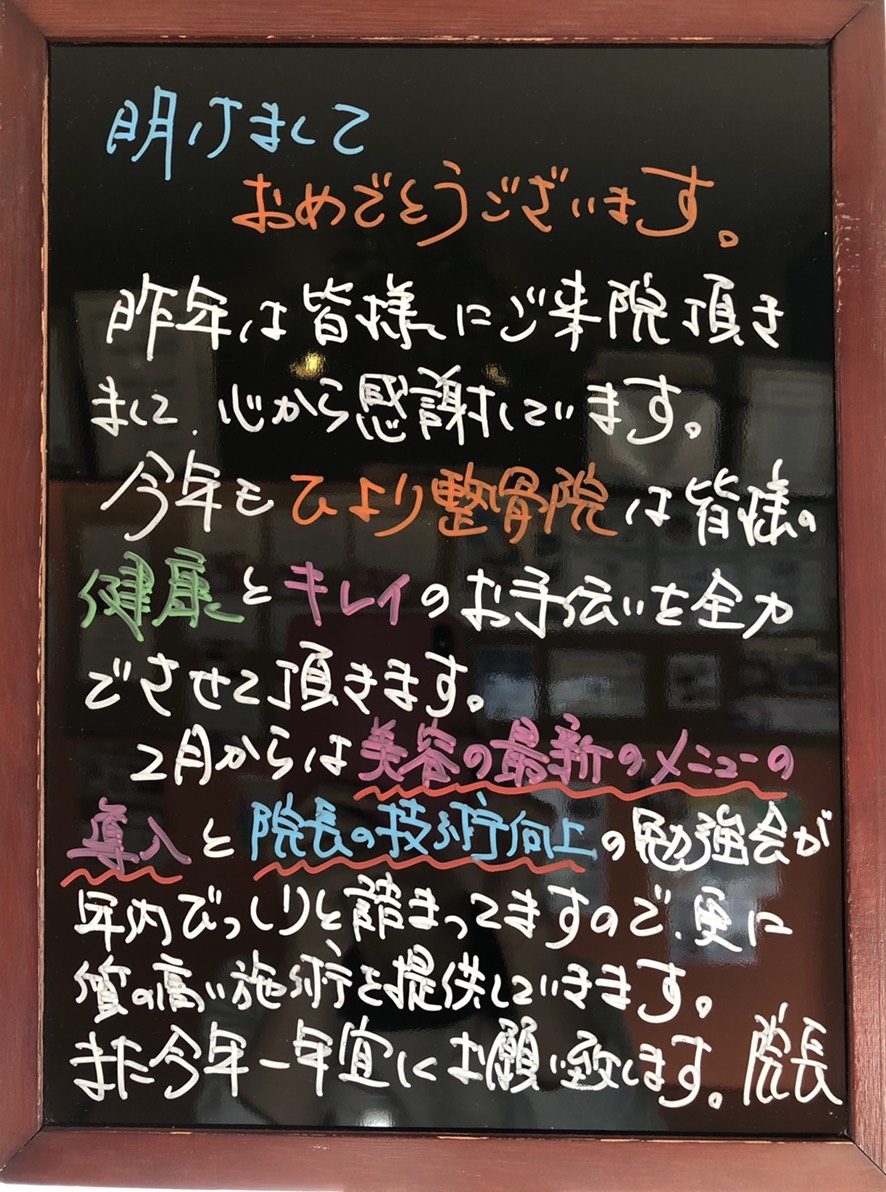 明けまして
おめでとうございます。
昨年は皆様にご来院頂き
まして、心から感謝しています。
今年もひより整骨院は皆様の
健康とキレイのお手伝いを全力
でさせて頂きます。
2月からは美容の最新のメニューの
導入と院長の技術向上の勉強会が
年内びっしりと詰まってますので、更に
質の高い施術を提供していきます。
また今年一年宜しくお願い致します。院長